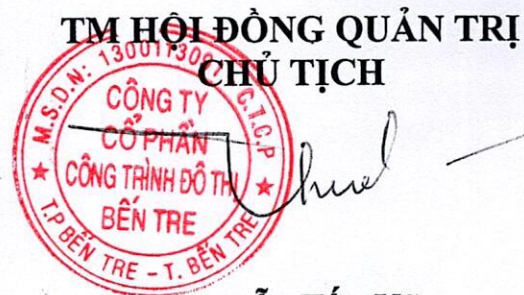 TM HỘI ĐỒNG QUẢN TRỊ
CHỦ TỊCH
M.S.D.N: C.T.C.P
CÔNG TY
CỔ PHẦN
CÔNG TRÌNH ĐÔ THỊ
BẾN TRE
T.P BẾN TRE - T. BẾN TRE